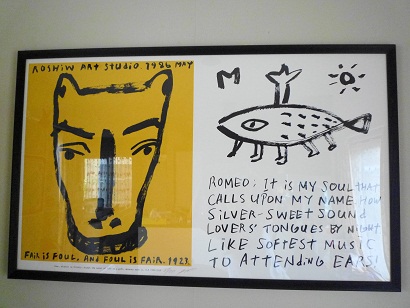 KOSHIN ART STUDIO. 1986 MAY
M
FAIR IS FOUL, AND FOUL IS FAIR. 1923.
ROMEO: IT IS MY SOUL THAT
CALLS UPON MY NAME. HOW
SILVER-SWEET SOUND
LOVERS' TONGUES BY NIGHT
LIKE SOFTEST MUSIC
TO ATTENDING EARS!